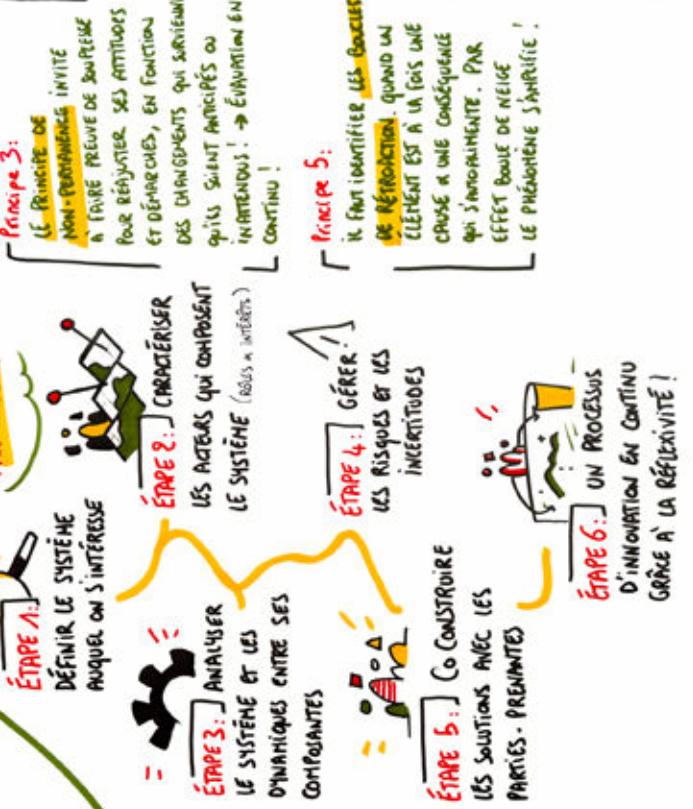 ÉTAPE 1:
DÉFINIR LE SYSTÈME
AUQUEL ON S'INTÉRESSE
ÉTAPE 2: CARACTÉRISER
LES ACTEURS QUI COMPOSENT
LE SYSTÈME (RÔLES & INTÉRÊTS)
ÉTAPE 3: ANALYSER
LE SYSTÈME ET LES
DYNAMIQUES ENTRE SES
COMPOSANTES
ÉTAPE 4: GÉRER
LES RISQUES ET LES
INCERTITUDES
ÉTAPE 5: CO CONSTRUIRE
LES SOLUTIONS AVEC LES
PARTIES-PRENANTES
ÉTAPE 6: UN PROCESSUS
D'INNOVATION EN CONTINU
GRÂCE À LA RÉFLEXIVITÉ!
Principe 3:
LE PRINCIPE DE
NON-PERMANENCE INVITE
À FAIRE PREUVE DE SOUPLESSE
POUR RÉAJUSTER SES ATTITUDES
ET DÉMARCHES, EN FONCTION
DES CHANGEMENTS QUI
QU'ILS SOIENT ANTICIPÉS OU
INATTENDUS! → ÉVALUATION EN
CONTINU!
Principe 5:
IL FAUT IDENTIFIER LES BOUCLES
DE RÉTROACTION. QUAND UN
ÉLÉMENT EST À LA FOIS UNE
CAUSE & UNE CONSÉQUENCE
QUI S'AUTOALIMENTE. PAR
EFFET BOULE DE NEIGE
LE PHÉNOMÈNE S'AMPLIFIE!